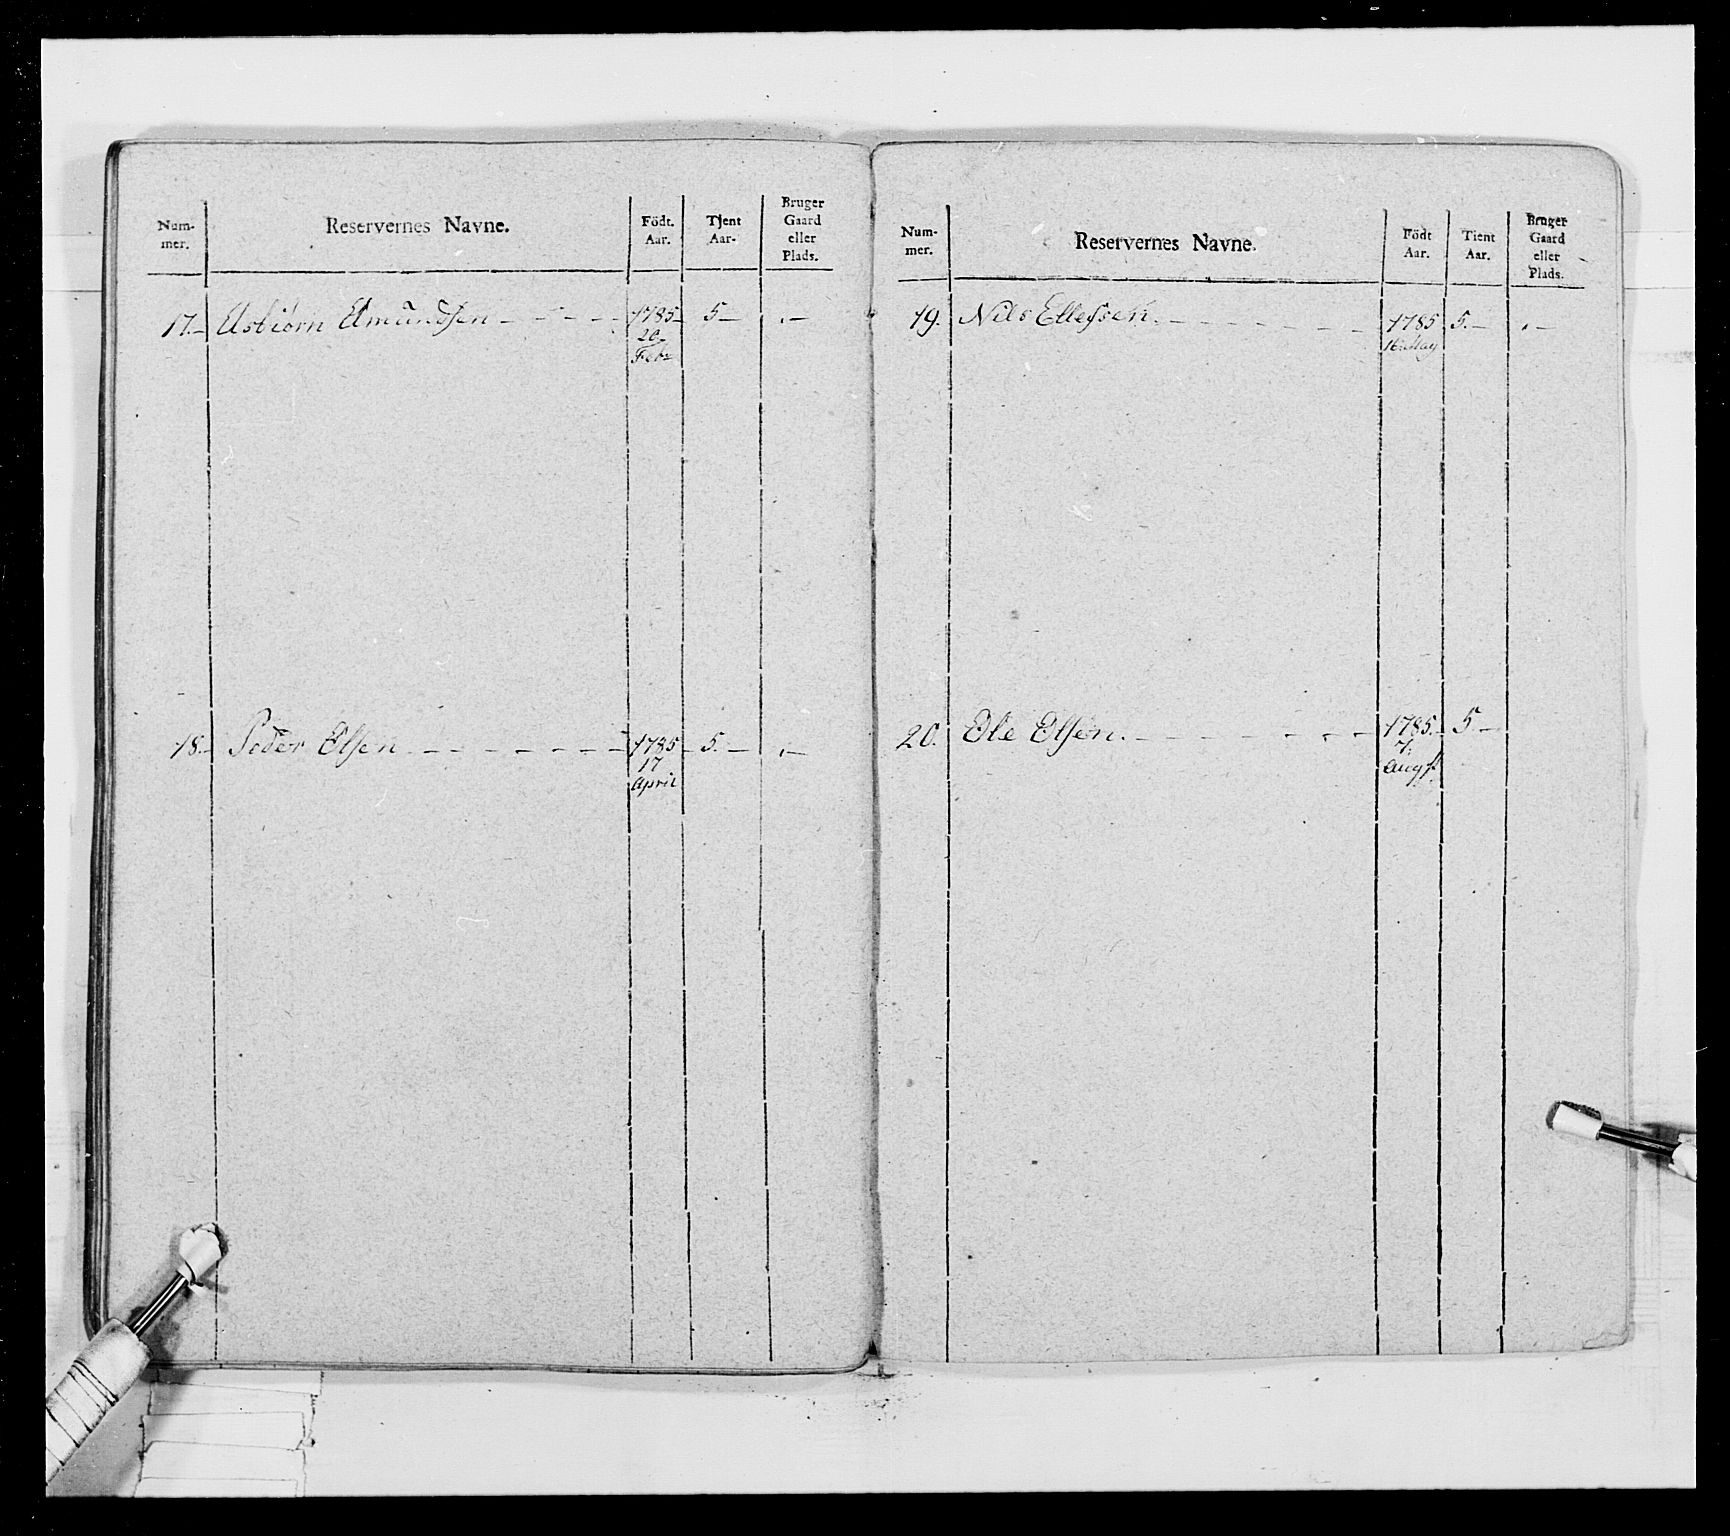 Num-
mer.
Reservernes Navne.
Födt.
Aar.
Tjent
Aar.
Bruger
Gaard
eller
Plads.
17.— Asbiörn Amundsen — — — — 1785— 5— .—
20
Febr
18.— Peder Olsen — — — — — — 1785 5.— .—
17
April
Num-
mer.
Reservernes Navne.
Födt
Aar.
Tient
Aar.
Bruger
Gaard
eller
Plads.
19. Nils Ellefsen. — — — — — — 1785 5.— .—
16 May
20. Ole Olsen. — — — — — — 1785. 5—
7.
Augst